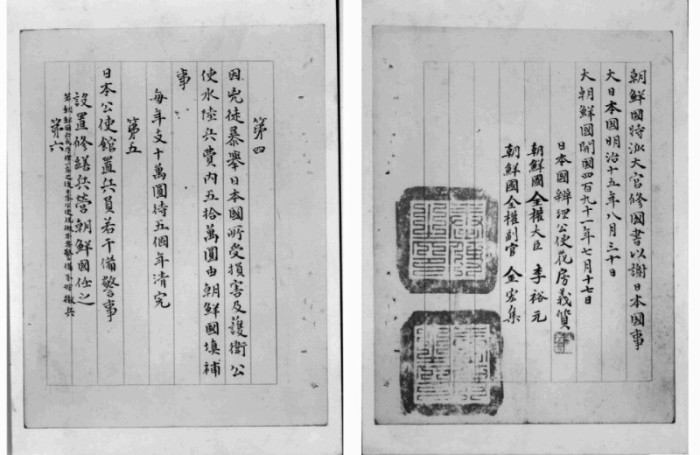 第四
因兇徒暴擧日本國所受損害及護衛公
使水陸兵費內五拾萬圓由朝鮮國填補
事
每年支十萬圓待五個年清完
第五
日本公使館置兵員若干備警事
設置修繕兵營朝鮮國任之
若朝鮮國兵民守律一年之後日本公使視做不要警備不妨撤兵
第六
朝鮮國特派大官修國書以謝日本國事
大日本國明治十五年八月三十日
大朝鮮國開國四百九十一年七月十七日
日本國辦理公使花房義質
朝鮮國全權大臣 李裕元
朝鮮國全權副官 金宏集